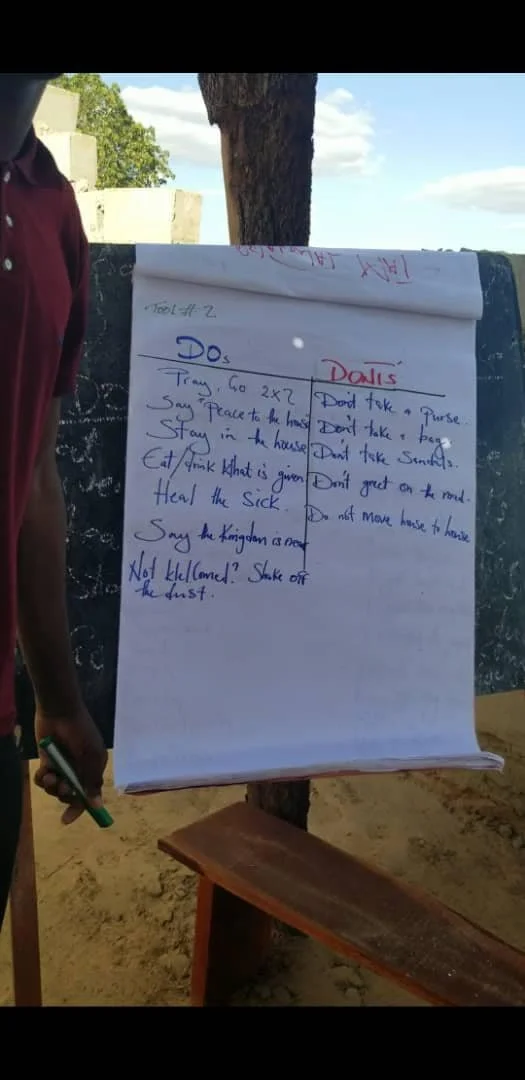 TOOL # 2
DOs
Pray, Go 2x2
Say "Peace to the house
Stay in the house
Eat/drink What is given
Heal the Sick.
Say the Kingdom is near
Not Wellcomed? Shake off
the dust.
DON'TS
Don't take a purse.
Don't take a bag
Don't take Sandals.
Don't greet on the road.
Do not move house to house